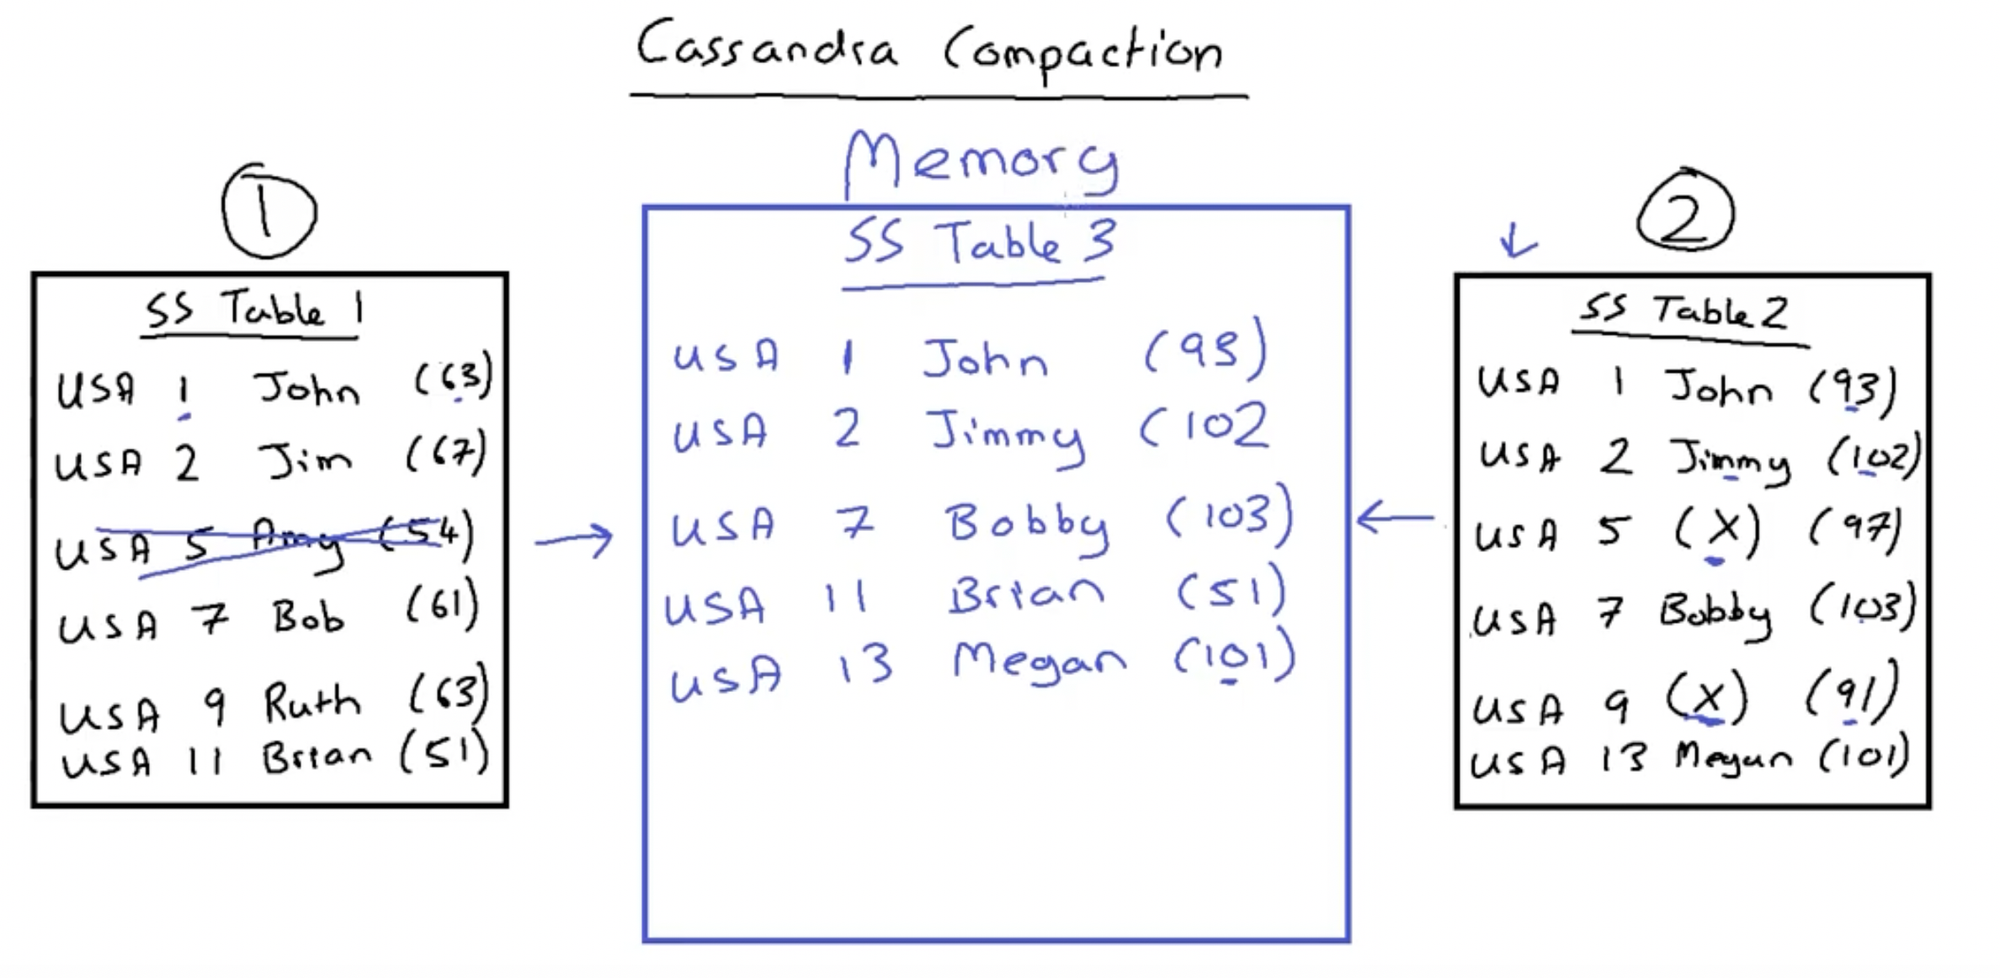 Cassandra Compaction
Memory
1
SS Table 1
USA 1 John (63)
USA 2 Jim (67)
USA 5 Amy (54)
USA 7 Bob (61)
USA 9 Ruth (63)
USA 11 Brian (51)
SS Table 3
USA 1 John (93)
USA 2 Jimmy (102
USA 7 Bobby (103)
USA 11 Brian (51)
USA 13 Megan (101)
2
SS Table 2
USA 1 John (93)
USA 2 Jimmy (102)
USA 5 (X) (97)
USA 7 Bobby (103)
USA 9 (X) (91)
USA 13 Megan (101)